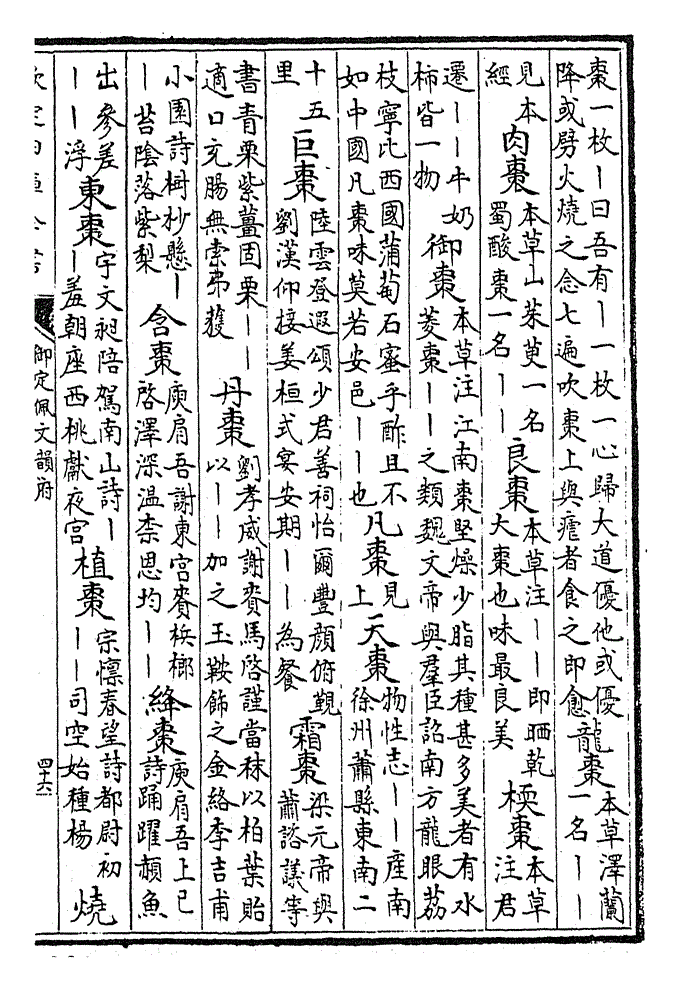 棗一枚丨曰吾有丨一枚一心歸大道優他或優
降或劈火燒之念七遍吹棗上與瘧者食之即愈
龍棗
本草澤蘭
一名丨丨
見本
經
肉棗
本草山茱萸一名
蜀酸棗一名丨丨
良棗
本草注丨丨即晒乾
大棗也味最良美
㮕棗
本草
注君
遷丨丨牛奶
柿皆一物
御棗
本草注江南棗堅燥少脂其種甚多美者有水
菱棗丨丨之類魏文帝與羣臣詔南方龍眼荔
枝寧比西國蒲萄石蜜乎酢且不
如中國凡棗味莫若安邑丨丨也
凡棗
見
上
天棗
物性志丨丨産南
徐州蕭縣東南二
十五
里
巨棗
陸雲登遐頌少君善祠怡爾豐顔俯觀
劉漢仰接姜桓式宴安期丨丨為餐
霜棗
梁元帝與
蕭諮議等
書青栗紫薑固栗丨丨
適口充腸無索弗獲
丹棗
劉孝威謝賚馬啓謹當秣以柏葉貽
以丨丨加之玉鞍飾之金絡李吉甫
小園詩樹杪懸丨
丨苔陰落紫梨
含棗
庾肩吾謝東宮賚檳榔
啓澤深温柰恩均丨丨
絳棗
庾肩吾上巳
詩踊躍頳魚
出參差
丨丨浮
東棗
宇文昶陪駕南山詩丨
丨羞朝座西桃獻夜宮
植棗
宗懍春望詩都尉初
丨丨司空始種楊
燒
欽定四庫全書
御定佩文韻府
四十六